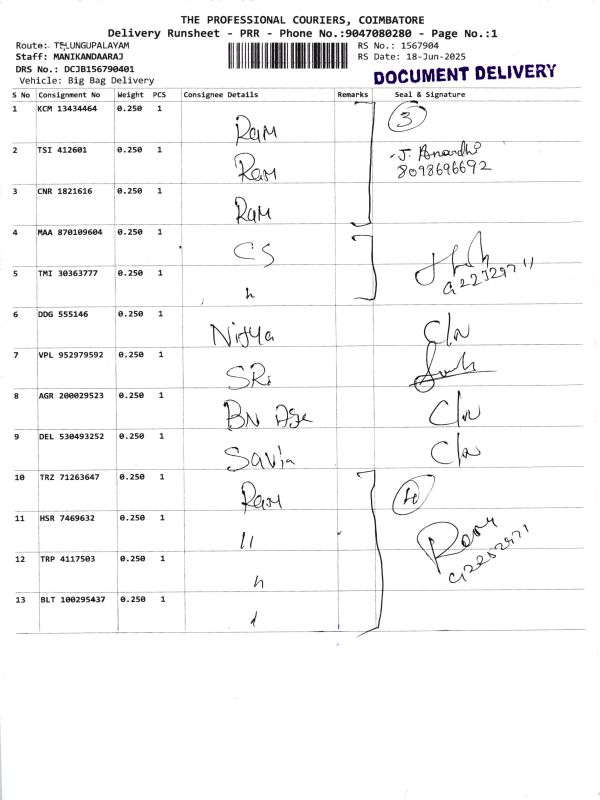 THE PROFESSIONAL COURIERS, COIMBATORE
Delivery Runsheet - PRR - Phone No.:9047080280 - Page No.:1
Route: TELUNGUPALAYAM
RS No.: 1567904
Staff: MANIKANDAARAJ
RS Date: 18-Jun-2025
DRS No.: DCJB156790401
Vehicle: Big Bag Delivery
DOCUMENT DELIVERY
S No Consignment No Weight PCS Consignee Details Remarks Seal & Signature
1 KCM 13434464 0.250 1 Ram 3
2 TSI 412601 0.250 1 Ram J. Anandhi
8098696692
3 CNR 1821616 0.250 1 Ram
4 MAA 870109604 0.250 1 CS
5 TMI 30363777 0.250 1
6 DDG 555146 0.250 1 Nitya C/n
7 VPL 952979592 0.250 1 SRi
8 AGR 200029523 0.250 1 BN C/n
9 DEL 530493252 0.250 1 Savia C/n
10 TRZ 71263647 0.250 1 Ram 4
11 HSR 7469632 0.250 1 11
12 TRP 4117503 0.250 1
13 BLT 100295437 0.250 1